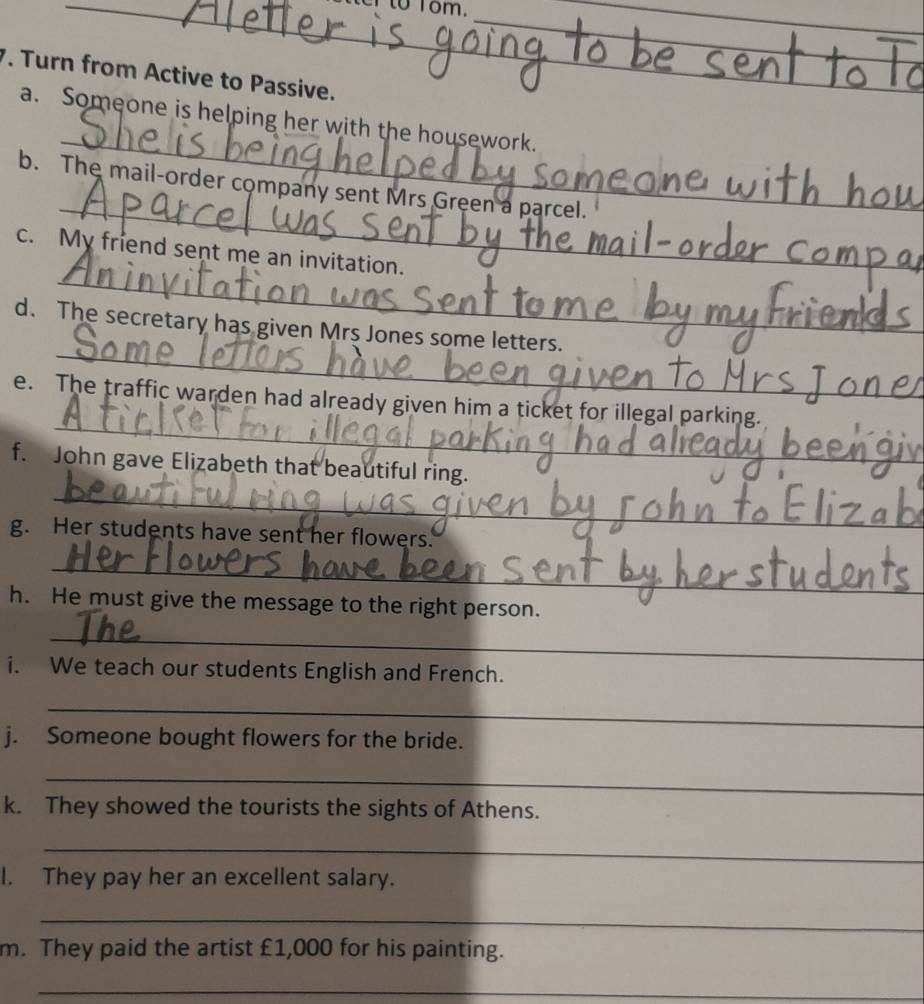 to Tom.
A letter is going to be sent to To
7. Turn from Active to Passive.
a. Someone is helping her with the housework.
She is being helped by someone with hou
b. The mail-order company sent Mrs Green a parcel.
A parcel was sent by the mail-order compa
c. My friend sent me an invitation.
An invitation was sent to me by my friends
d. The secretary has given Mrs Jones some letters.
Some letters have been given to Mrs Jone
e. The traffic warden had already given him a ticket for illegal parking.
A ticket for illegal parking had already been giv
f. John gave Elizabeth that beautiful ring.
beautiful ring was given by John to Elizab
g. Her students have sent her flowers.
Her Flowers have been sent by her students
h. He must give the message to the right person.
The
i. We teach our students English and French.
j. Someone bought flowers for the bride.
k. They showed the tourists the sights of Athens.
l. They pay her an excellent salary.
m. They paid the artist £1,000 for his painting.